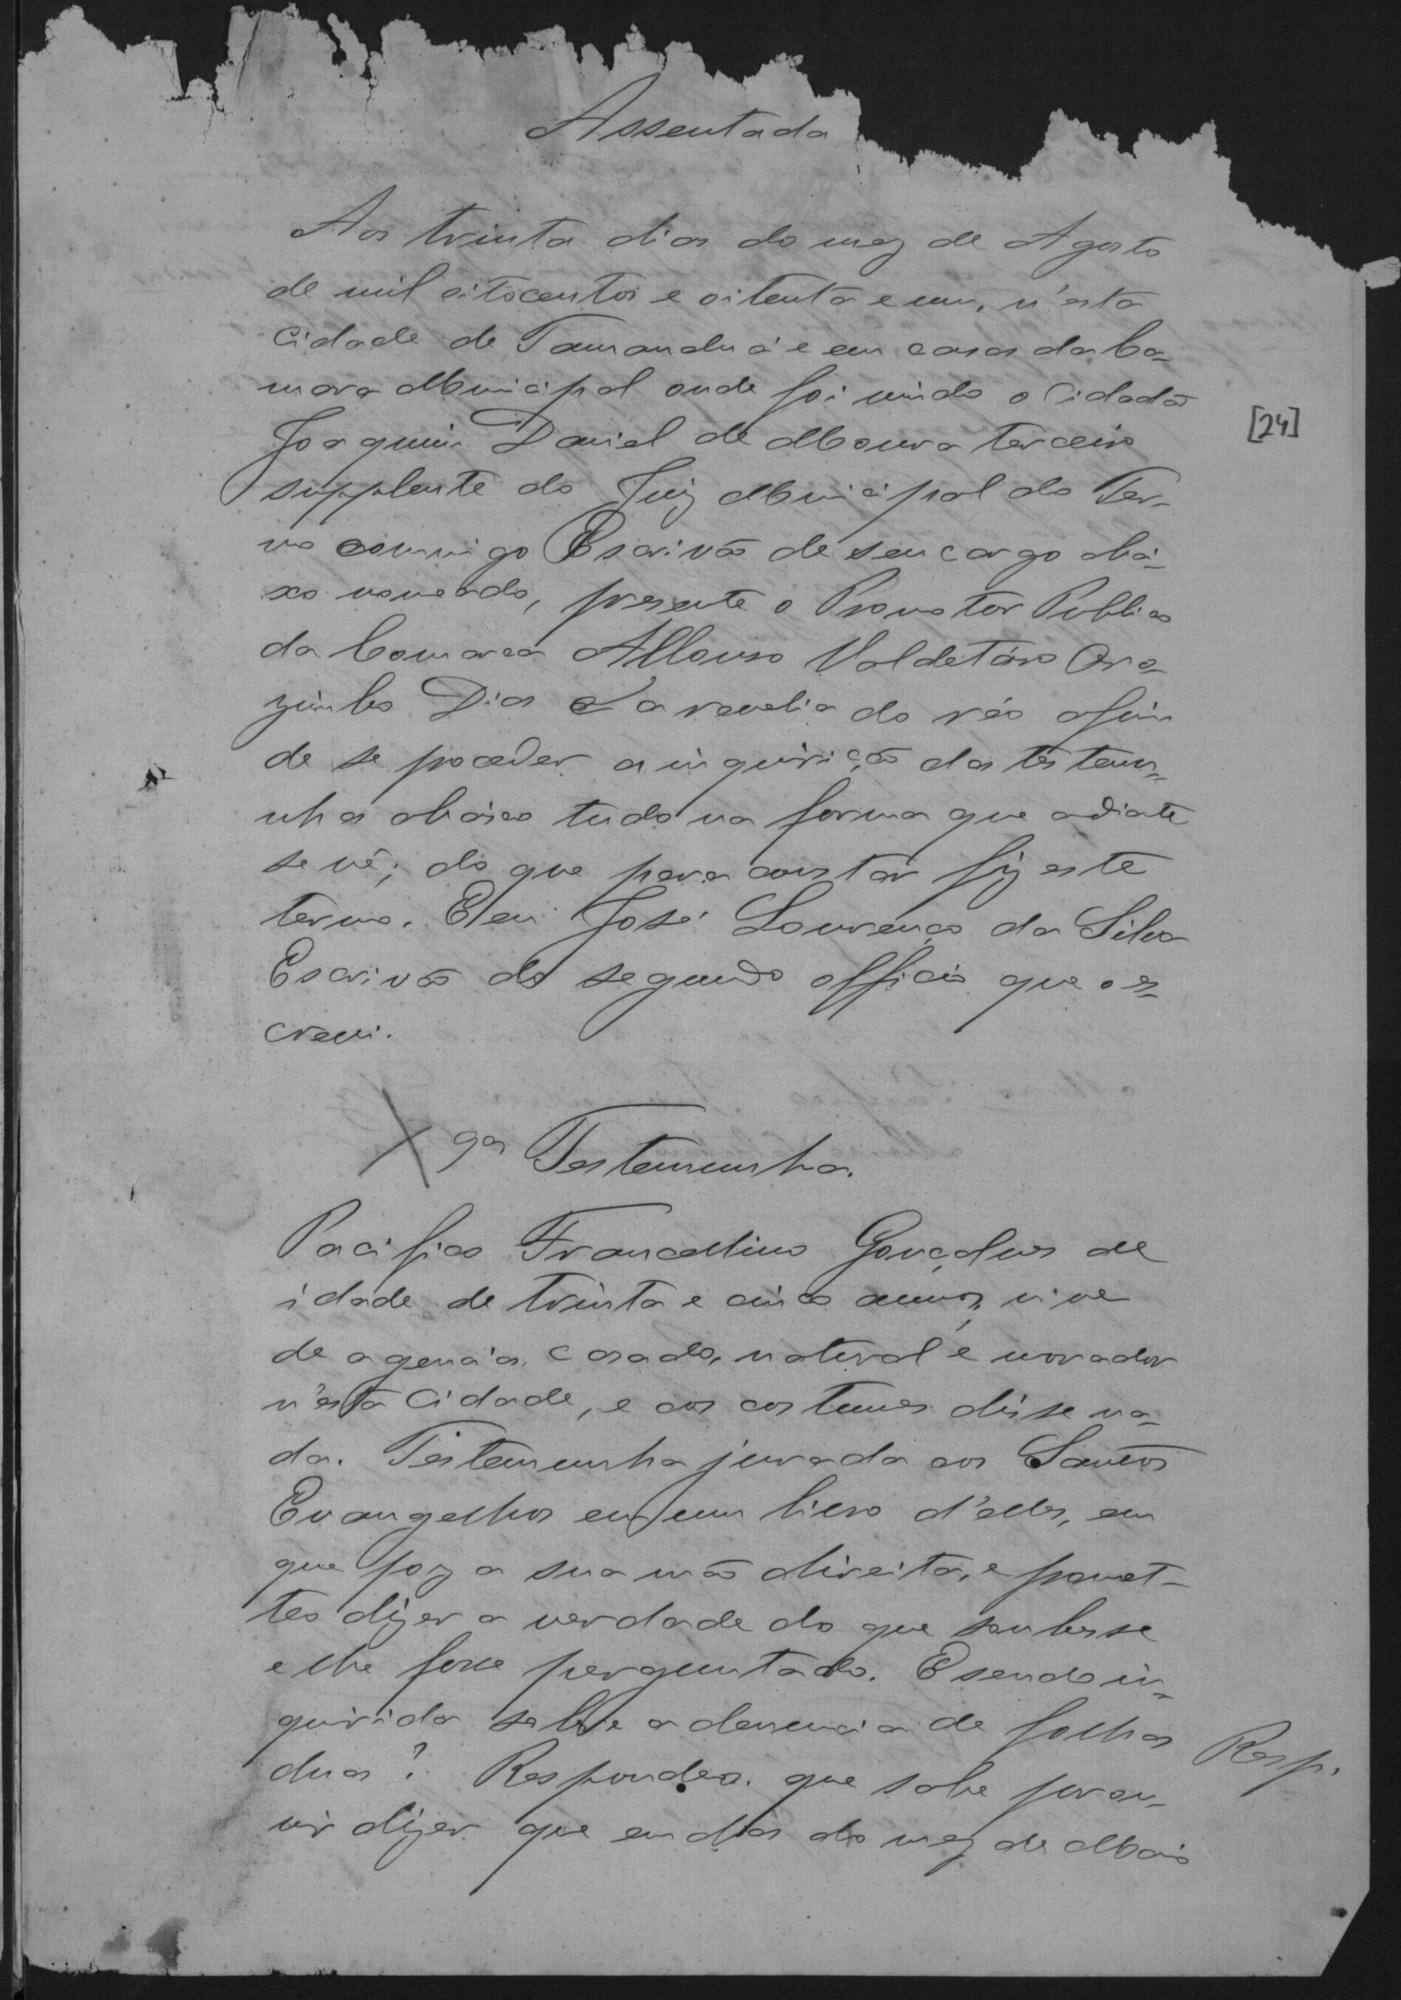 Assentada
Aos trinta dias do mez de Agosto
de mil oitocentos e oitenta e um, n'esta
cidade de Tamanduá e em casas da Ca-
mara Municipal onde foi vindo o Cidadão
[24]
Joaquim Daniel de Moura terceiro
supplente do Juiz Municipal do Ter-
mo commigo Escrivão de seu cargo abai-
xo nomeado, presente o Promotor Publico
da Comarca Affonso Valdetáro Ora-
zimbo Dias e a revelia do réo afim
de se poceder a inquirição das testemu-
nhas abaixo tudo na forma que adiate
se vê; do que para constar fiz este
termo. E eu José Lourenço da Silva
Escrivão do segundo officio que o es-
crevi.
9ª Testemunha.
Pacifico Francellino Gonçalves de
idade de trinta e cinco annos, vive
de agencia, casado, natural e morador
n'esta cidade, e aos costumes disse na-
da. Testemunha jurada aos Santos
Evangelhos em um livro d'elles, em
que poz a sua mão direita, e promet-
teo dizer a verdade do que soubesse
e lhe fosse perguntado. E sendo in-
quirida sobre a denuncia de folhas
duas? Respondeo. que sabe por ou-
Resp.
vir dizer que em dias do mez de Maio